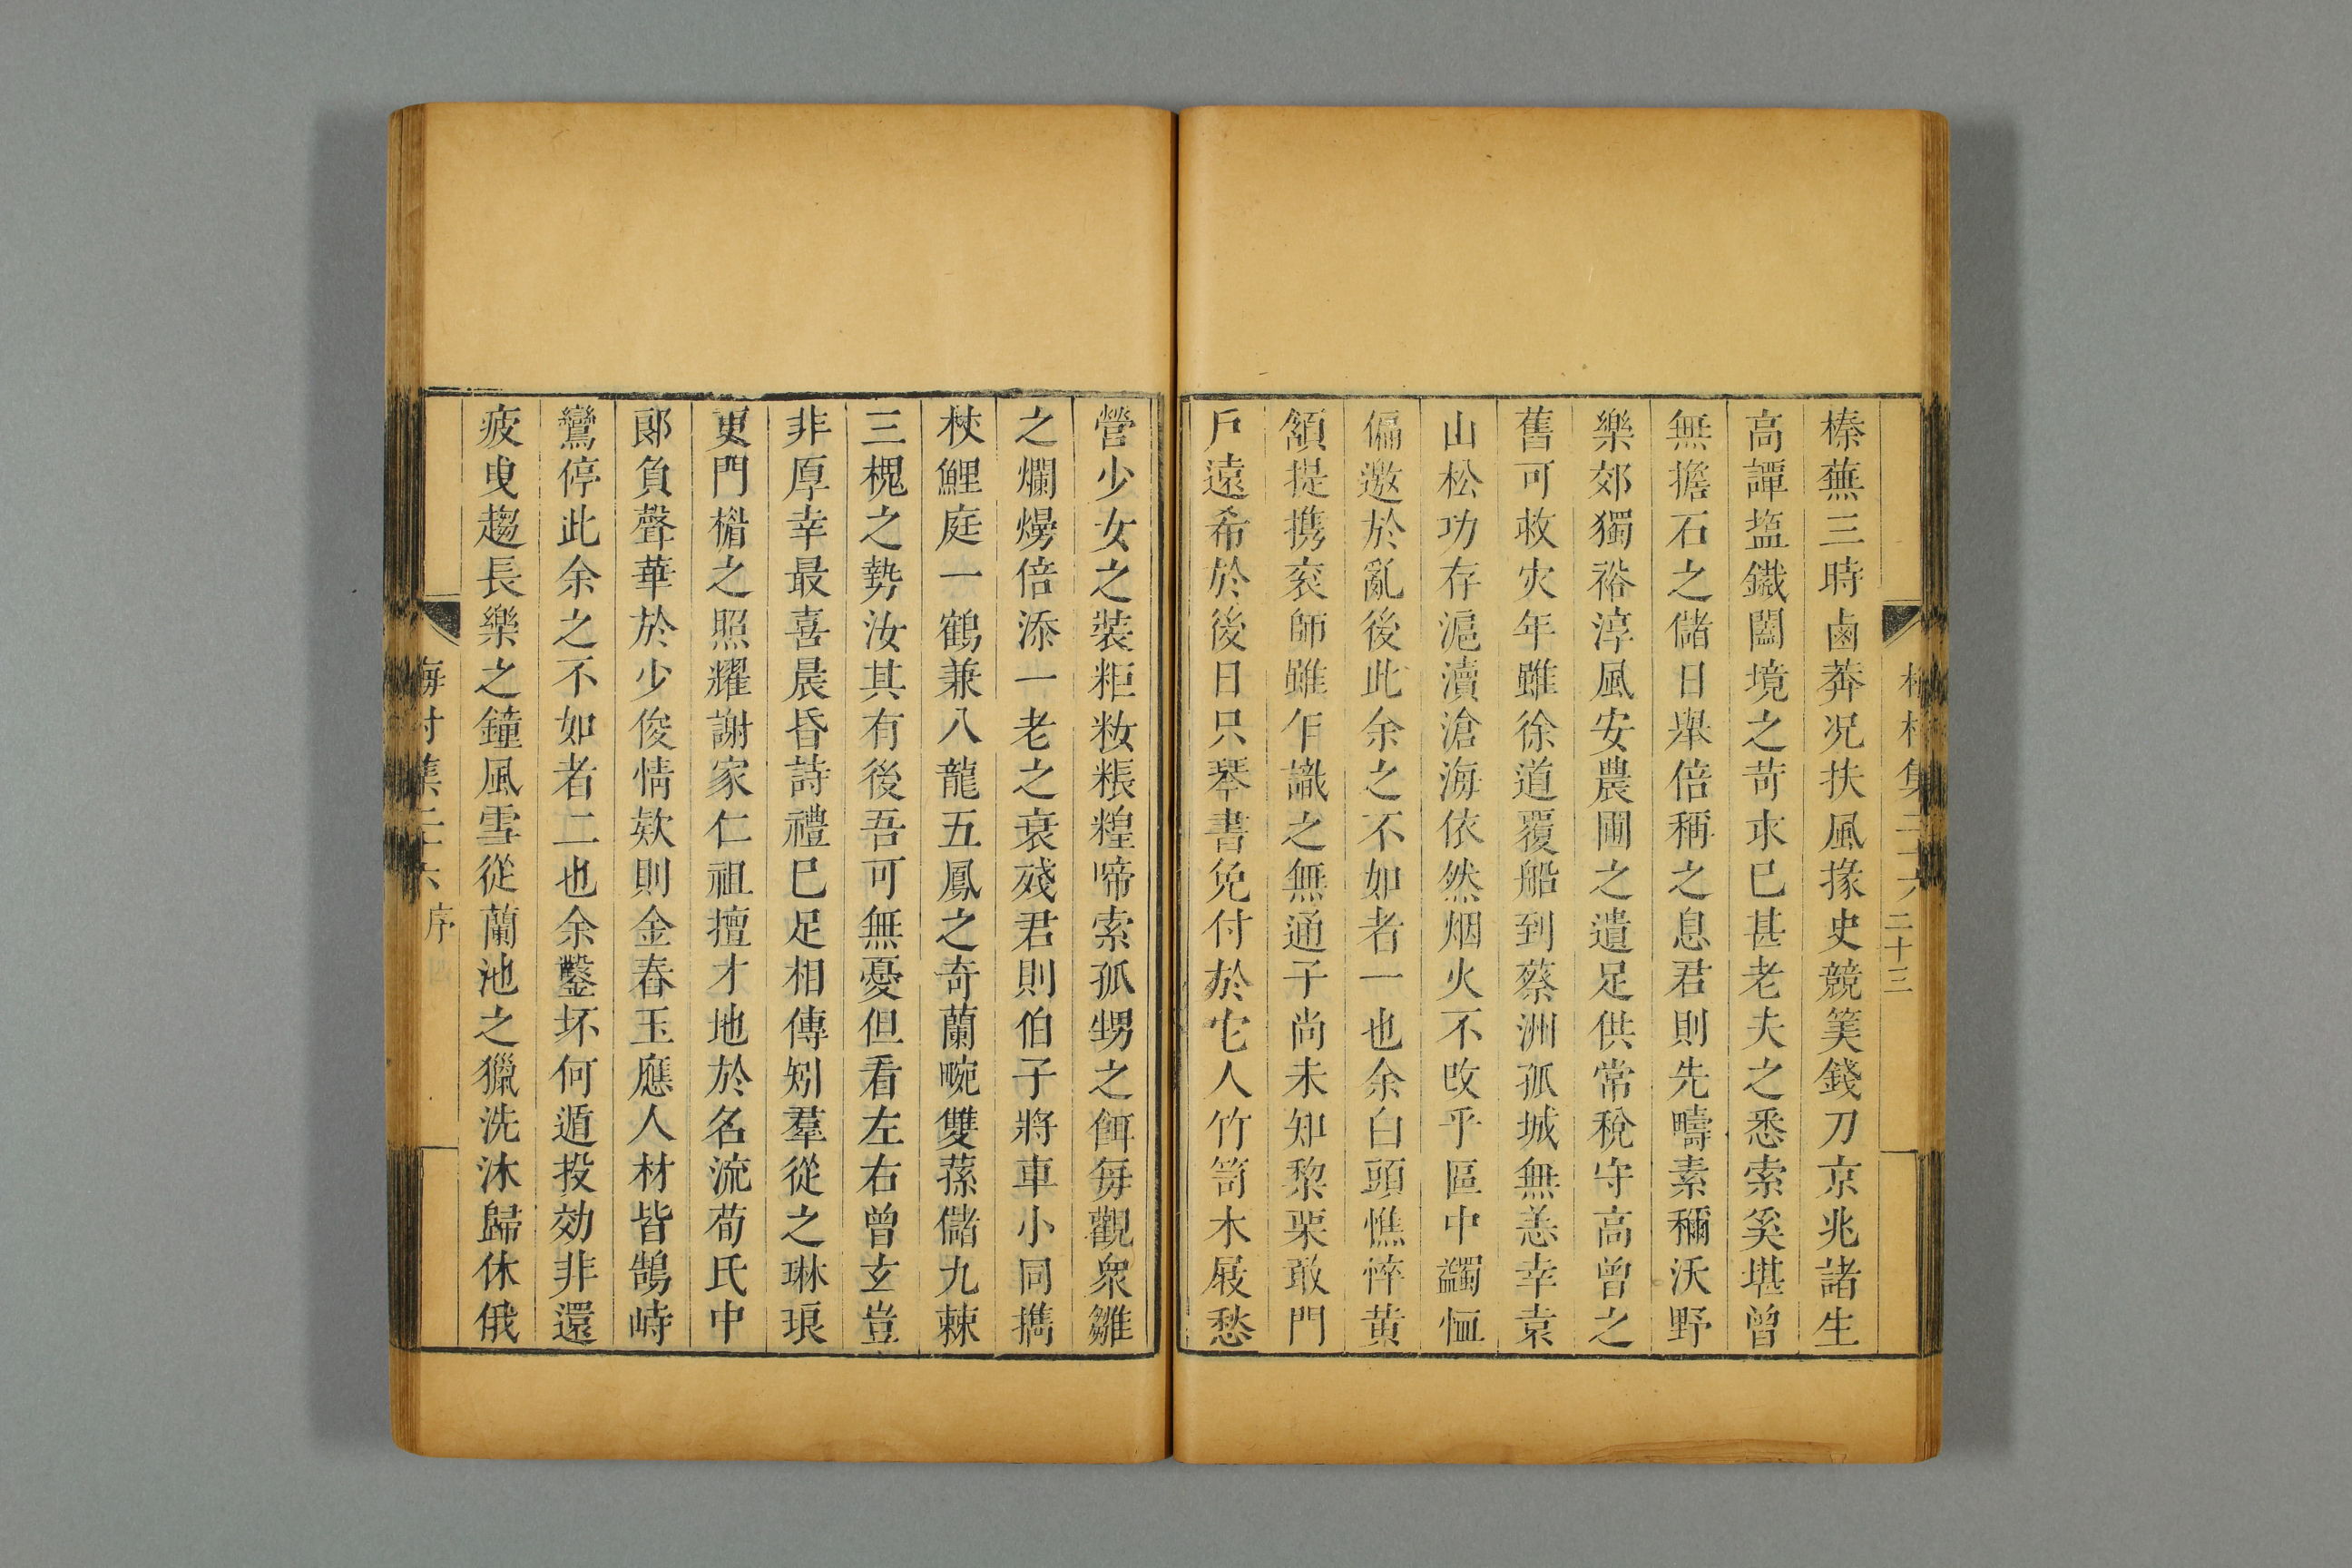 二十三
榛蕪三時鹵莽况扶風掾史競筭錢刀京兆諸生
高譚塩鐵闔境之苛求巳甚老夫之悉索奚堪曾
無擔石之儲日舉倍稱之息君則先疇素稱沃野
樂郊獨裕淳風安農圃之遺足供常稅守高曾之
舊可救灾年雖徐道覆船到蔡洲孤城無恙幸袁
山松功存滬瀆滄海依然烟火不改乎區中蠲恤
偏邀於亂後此余之不如者一也余白頭憔悴黃
頷提携衮師雖乍識之無通子尚未知黎栗敢門
戶遠希於後日只琴書免付於它人竹笥木屐愁
營少女之裝粔籹粻餭啼索孤甥之餌每觀衆雛
之爛熳倍添一老之衰殘君則伯子將車小同擕
杖鯉庭一鶴兼八龍五鳳之奇蘭畹雙蓀儲九棘
三槐之勢汝其有後吾可無憂但看左右曾玄豈
非厚幸最喜晨昏詩禮巳足相傳矧羣從之琳琅
更門楣之照耀謝家仁祖擅才地於名流荀氏中
郞負聲華於少俊情欵則金春玉應人材皆鵠峙
鸞停此余之不如者二也余鑿坏何遁投効非還
疲曳趨長樂之鐘風雪從蘭池之獵洗沐歸休俄
序